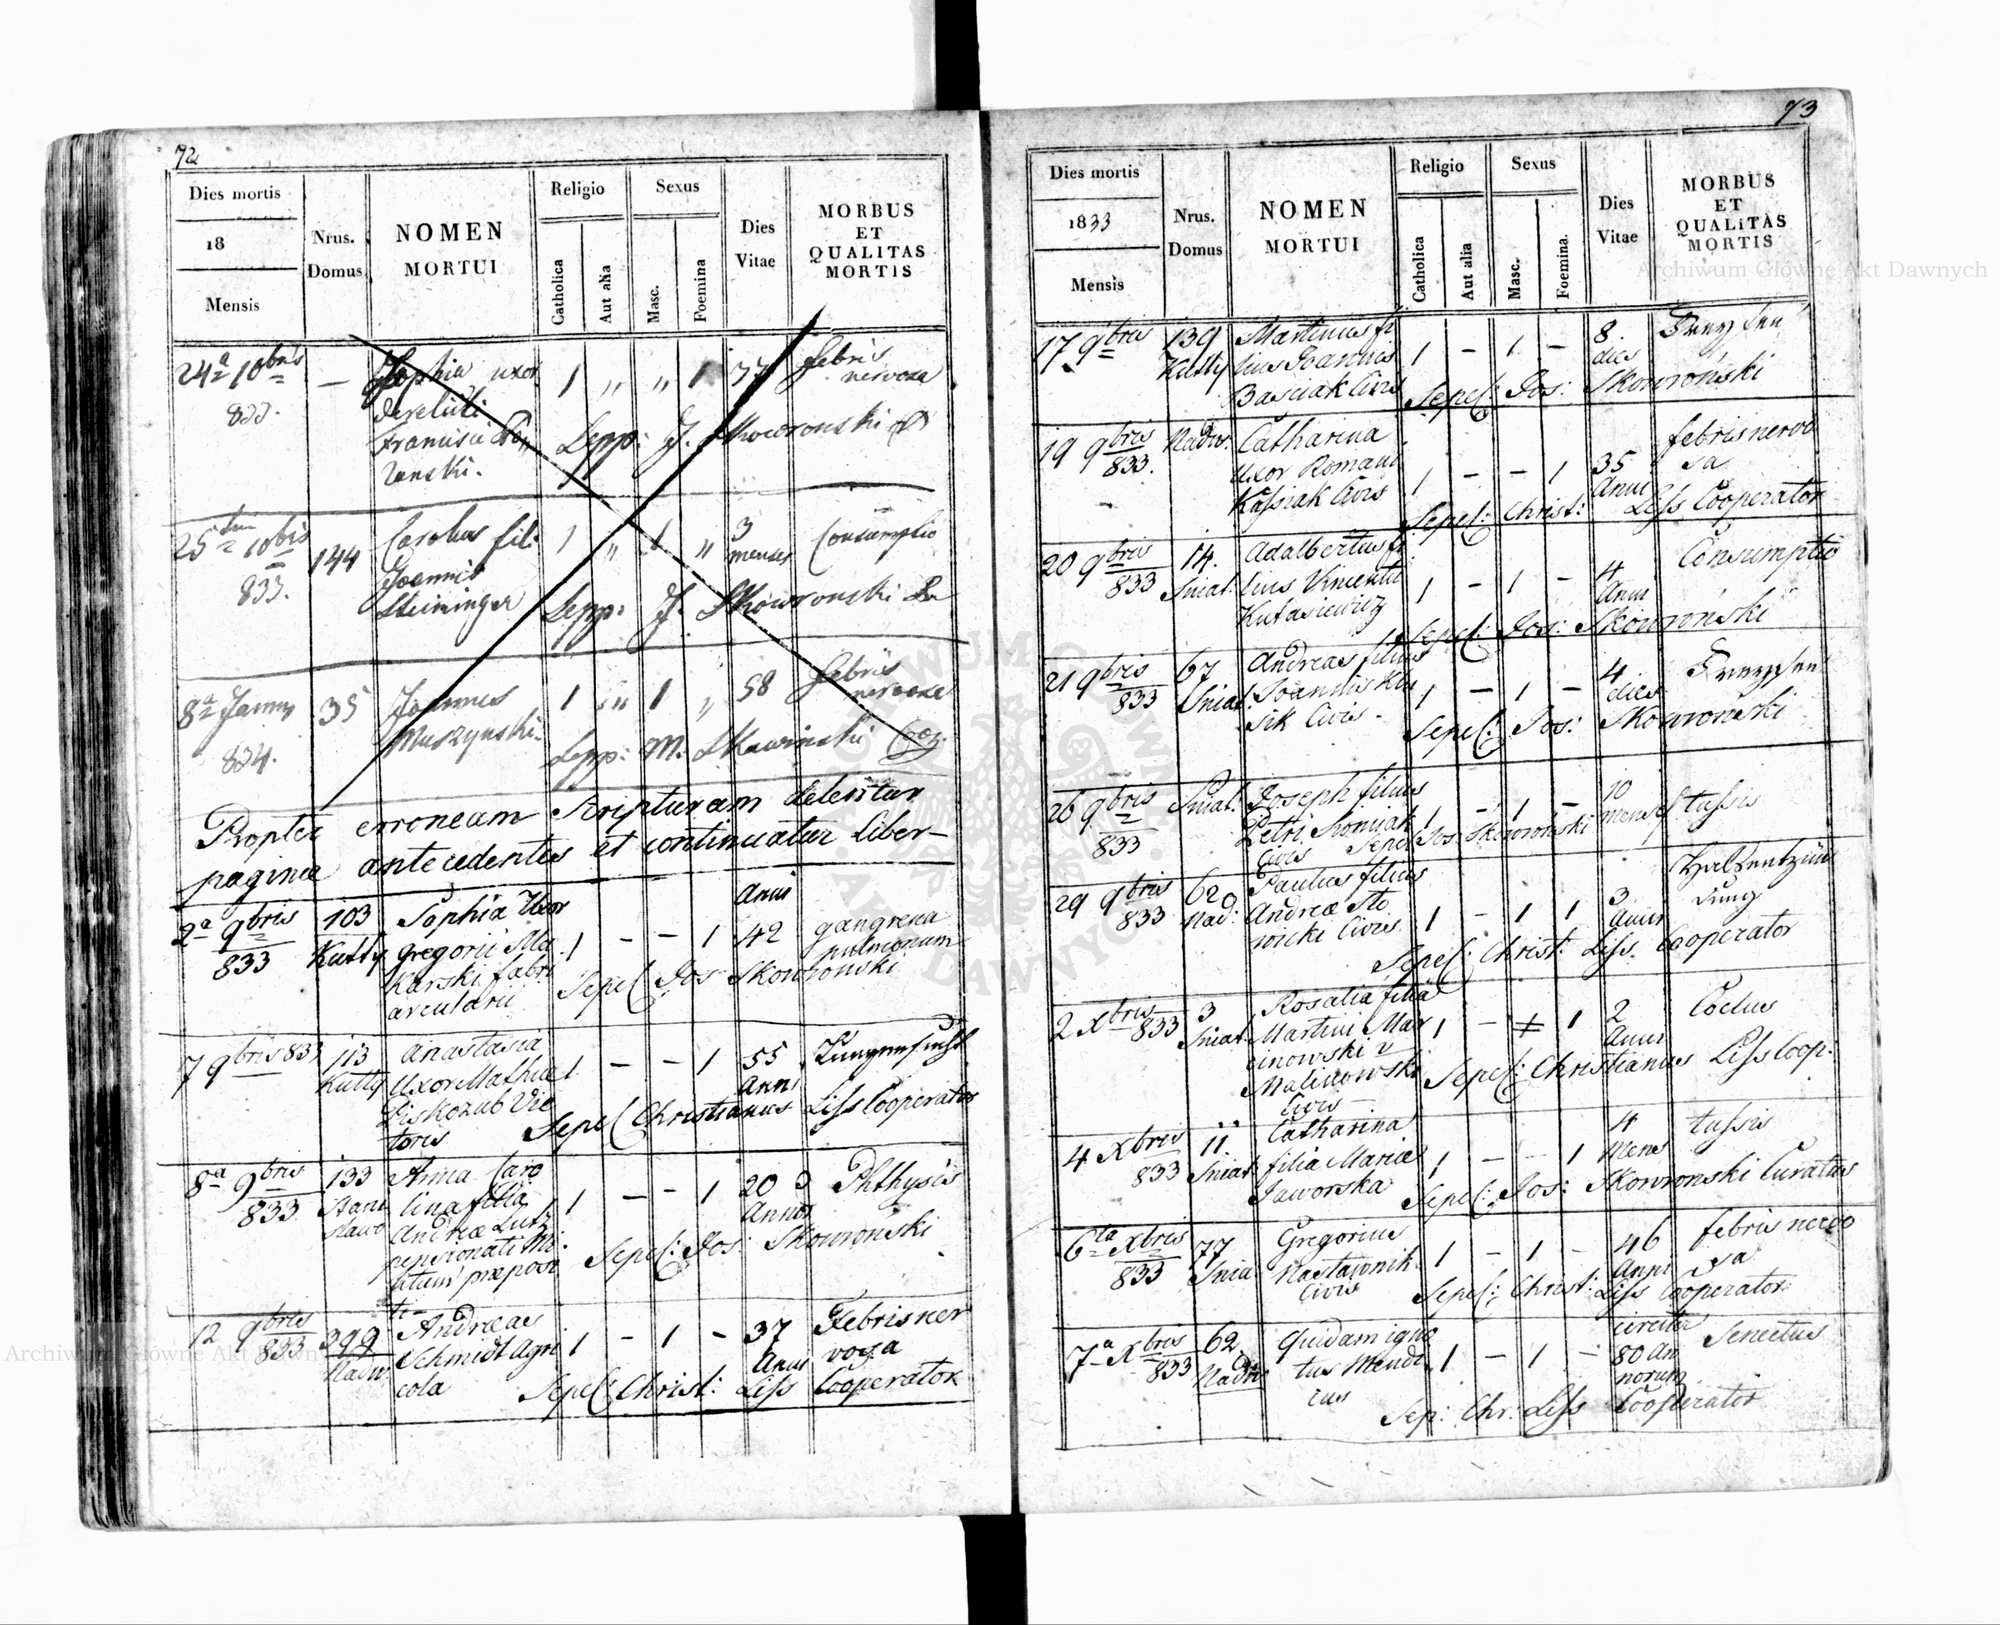 72
Dies mortis
18
Mensis
Nrus. Domus
NOMEN MORTUI
Religio
Catholica
Aut alia
Sexus
Masc.
Foemina
Dies Vitae
MORBUS ET QUALITAS MORTIS
24a 10bris — Sophia uxor 1 „ „ 1 37 febris
833. derelicti nervosa
Francisci
Sepp: J. Skowronski
25 10bris 144 Carolus fil: 1 „ 1 „ 3 Consumptio
833. Joannis menses
Steininger Sepp: J. Skowronski
8a 35 Joannes 1 „ 1 „ 58 febris
834. Muszynski nervosa
Sepp: M.
Propter erroneam Scripturam delentur
paginæ antecedentes et continuatur Liber—
2a 9bris 103 Sophia Uxor Anni
833 Kutty Gregorii Ma 1 – – 1 42 gangrena
karski fabri pulmonum
arcularii Sepel: Jos Skowronski
7 9bris 833 113 Anastasia 1 – – 1 55 Lungensucht
Kutty Uxor Mathiæ Anni
Piskozub Vie
toris Sepel: Christianus Liss Cooperator
8a 9bris 133 Anna Caro 1 – – 1 20 Phthysis
833 Stani lina filia Annor
slawo Andreæ
pensionati Mi Sepel: Jos: Skowronski
præposi
ti–
12 9bris 399 Andreas 1 – 1 – 37 Febris ner
833 Nadw Schmidt Agri Anni vosa
cola Sepel: Christ: Liss Cooperator
73
Dies mortis
1833
Mensis
Nrus. Domus
NOMEN MORTUI
Religio
Catholica
Aut alia
Sexus
Masc.
Foemina.
Dies Vitae
MORBUS ET QUALITAS MORTIS
17 9bris 139 Martinus fi 1 – 1 – 8.
Kutty lius Joannis dies
Basciak Civis Sepel: Jos: Skowroński
19 9bris Nadw: Catharina febris nervo
833. Uxor Romani 1 – – 1 35 sa
Kaszak Civis Anni
Sepel: Christ: Liss Cooperator
20 9bris 14. Adalbertus fi Consumptio
833 Sniat: lius Vincentii 1 – 1 – 4
Kutasiewicz Anni
Sepel: Jos: Skowroński
21 9bris 67 Andreas filius 4
833 Sniat: Joannis 1 – 1 – dies
sik Civis– Sepel: Jos: Skowronski
26 9bris Sniat: Joseph filius 10
833 Petri 1 – 1 – menses tussis
Civis Sepel: Jos: Skowroński
29 9bris 620 Paulus filius 3 Halsentzün
833 Nad: Andreæ No 1 – 1 1 Anni dung
wicki Civis
Sepel: Christ: Liss. Cooperator
2 Xbris 3 Rosalia filia 2 Coctus
833 Sniat: Martini Mar 1 – 1 Anni
cinowski v
Malinowski Sepel: Christianus Liss Coop:
Civis
4 Xbris 11. Catharina 4 tussis
833 Sniat: filia Mariæ 1 – – 1 Mens
Jaworska Sepel: Jos: Skowronski Curatus
6ta Xbris 77 Gregorius 1 – 1 – 46 febris nervo
833 Snia Nastawnik Anni sa
Civis Sepel: Christ: Liss Cooperator
7a Xbris 62. quidam igno circiter Senectus
833 Nadw tus Mendi 1 – 1 – 80 An
cus norum
Sep: Chr: Liss Cooperator
Archiwum Główne Akt Dawnych
Archiwum Główne Akt Dawnych
ARCHIWUM GŁÓWNE AKT DAWNYCH